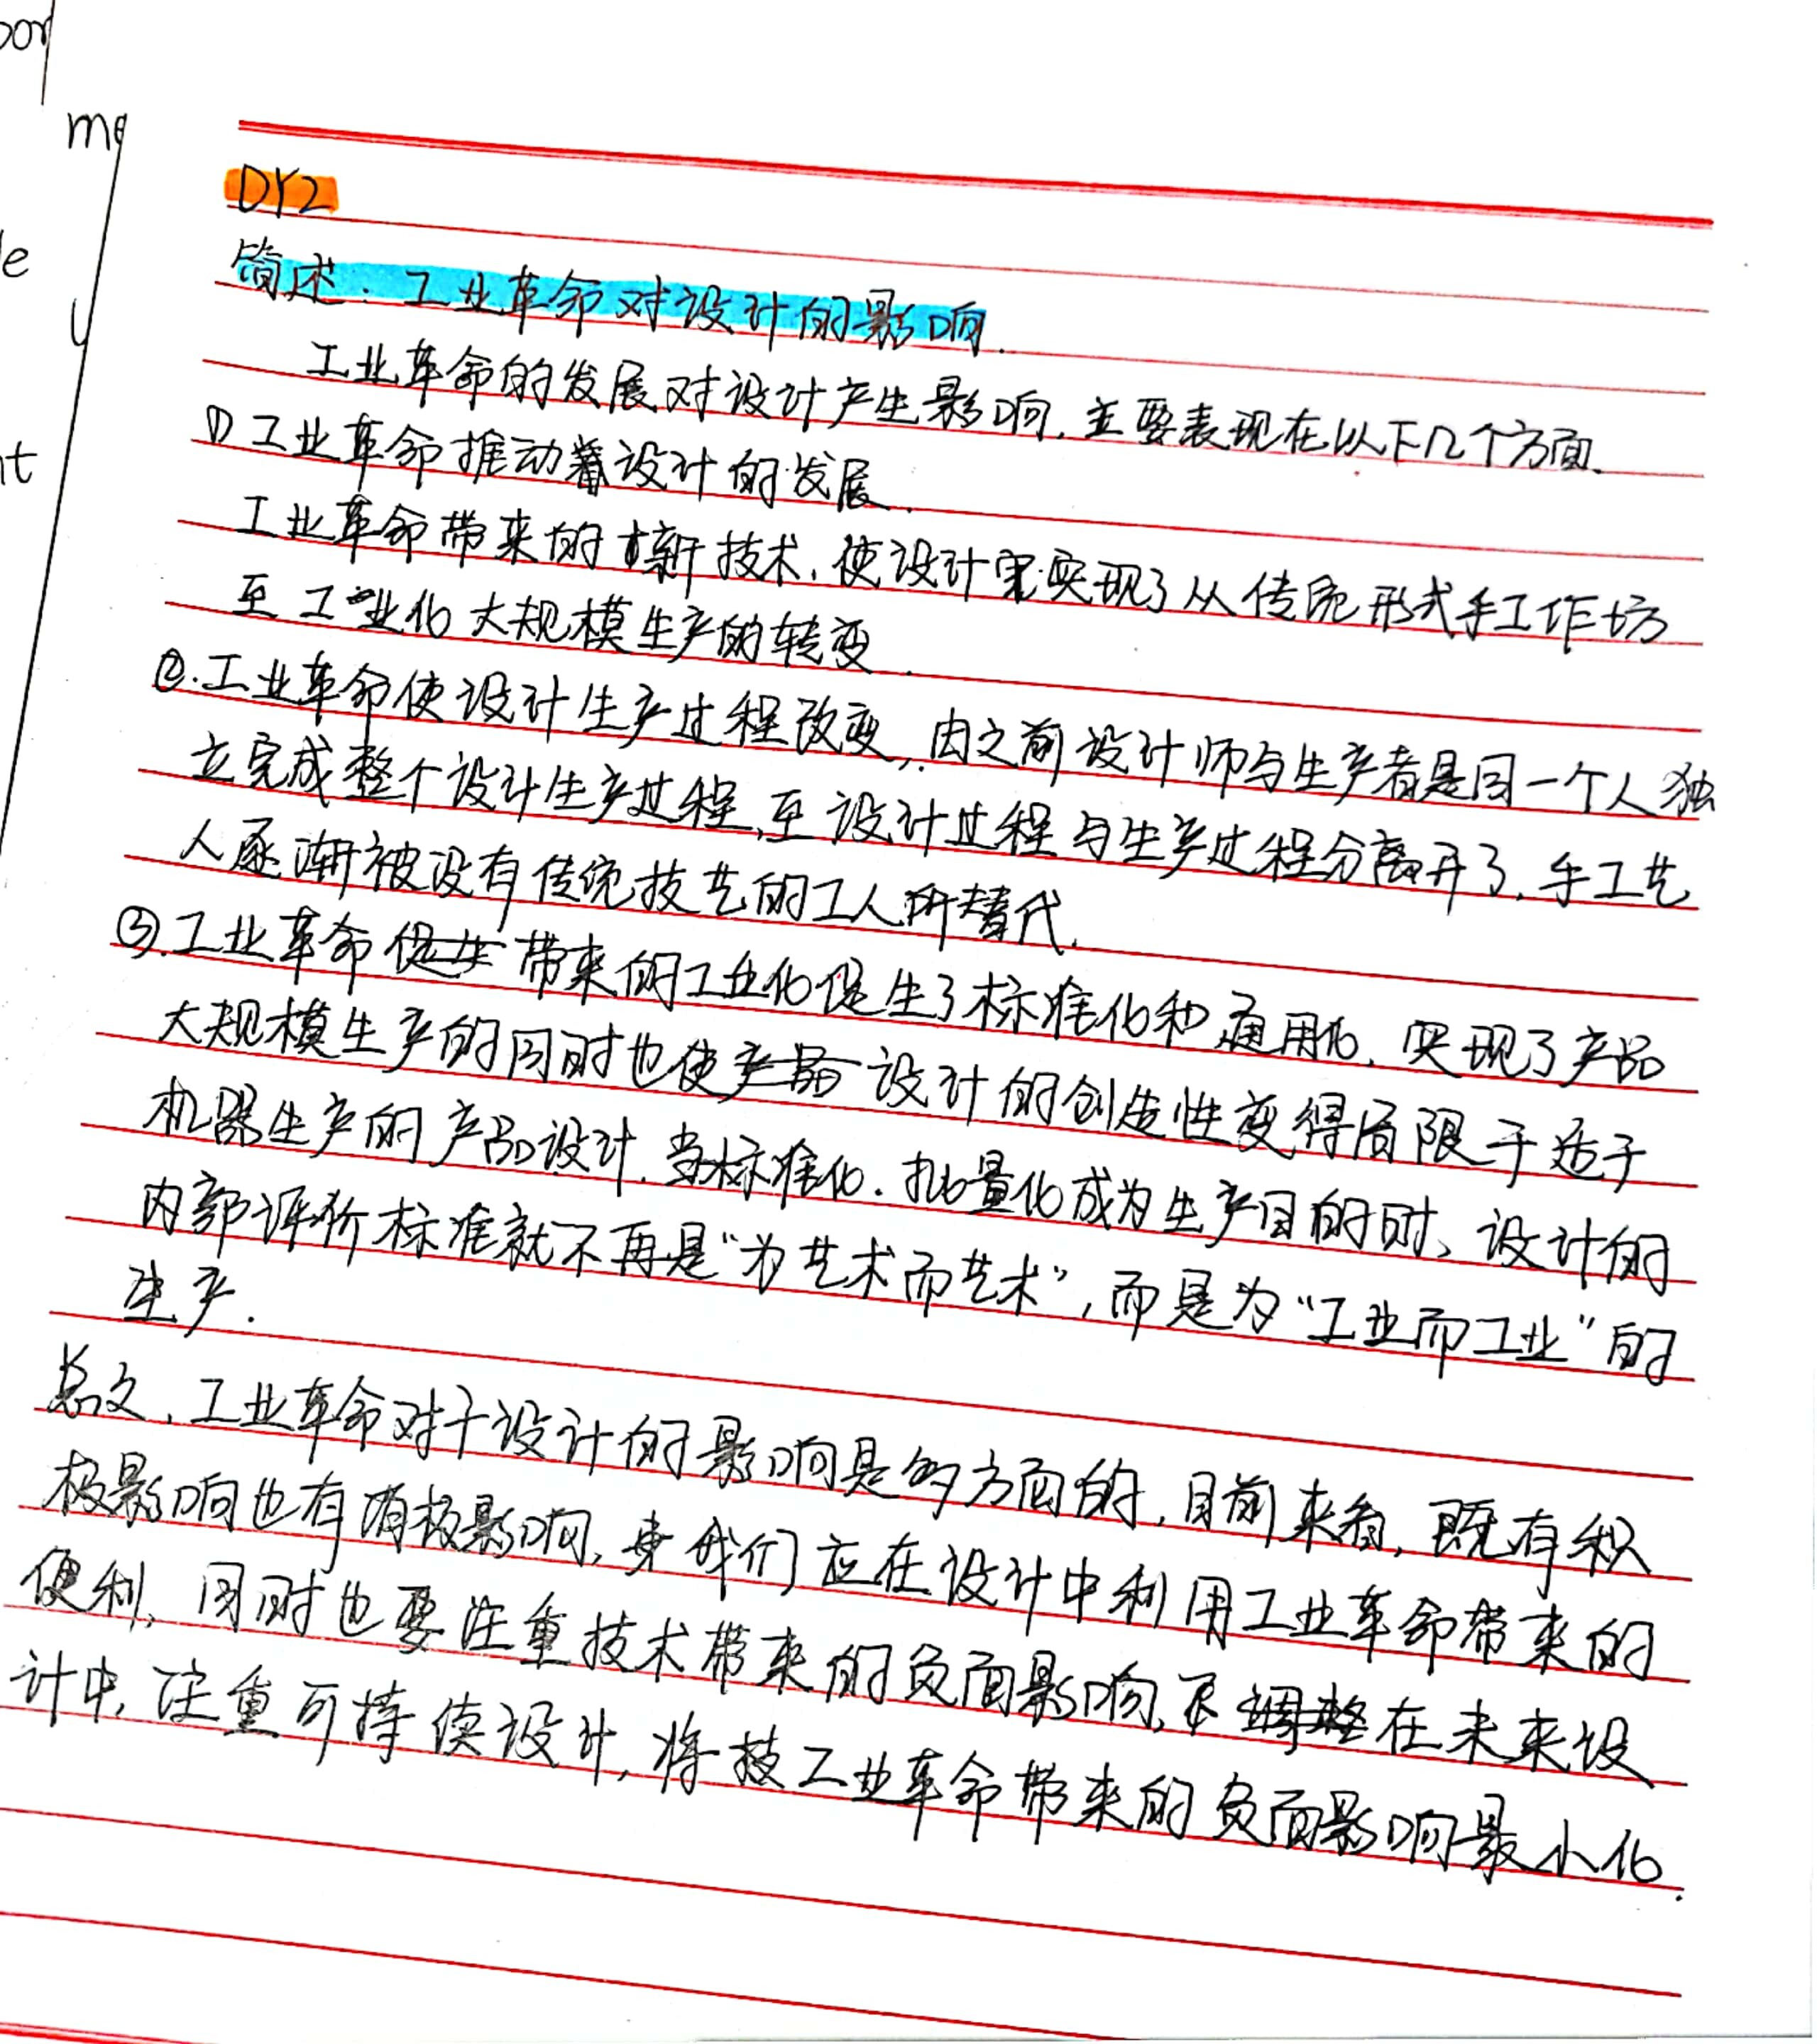 por
me
DY2
le
简述：工业革命对设计的影响.
y
工业革命的发展对设计产生影响，主要表现在以下几个方面.
nt
①工业革命推动着设计的发展.
工业革命带来的新技术，使设计实现了从传统形式手工作坊
至工业化大规模生产的转变.
②.工业革命使设计生产过程改变，由之前设计师与生产者是同一个人独
立完成整个设计生产过程，至设计过程与生产过程分离开了，手工艺
人逐渐被没有传统技艺的工人所替代.
③.工业革命带来的工业化促生了标准化和通用化，实现了产品
大规模生产的同时也使设计的创造性变得局限于适于
机器生产的产品设计.当标准化.批量化成为生产目的时、设计的
内部评价标准就不再是“为艺术而艺术”，而是为“工业而工业”的
生产.
总之，工业革命对于设计的影响是多方面的，目前来看，既有积
极影响也有消极影响，我们应在设计中利用工业革命带来的
便利，同时也要注重技术带来的负面影响，在未来设
计中，注重可持续设计，将工业革命带来的负面影响最小化.